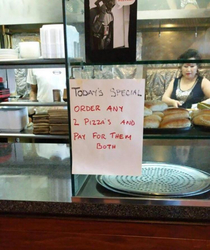 TODAY'S SPECIAL
ORDER ANY
2 PIZZA'S AND
PAY FOR THEM
BOTH